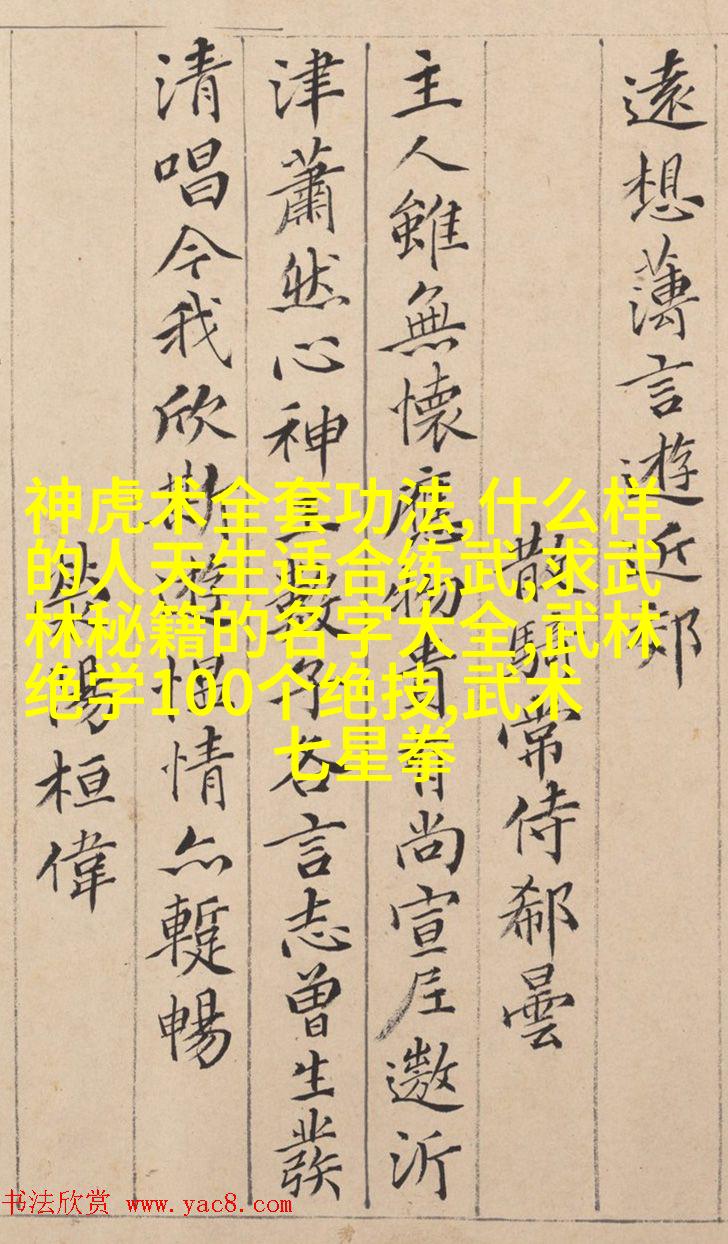 遠想蕩言遊近郊
散騎常侍郗曇
主人雖無懷應物貴有尚宣尼遨沂
津蕭然心神王數子各言志曾生發
清唱今我欣斯遊慍情亦蹔暢
桓偉
神虎术全套功法,什么样
的人天生适合练武,求武
林秘籍的名字大全,武林
绝学100个绝技,武术
七星拳
书法欣赏 www.yac8.com